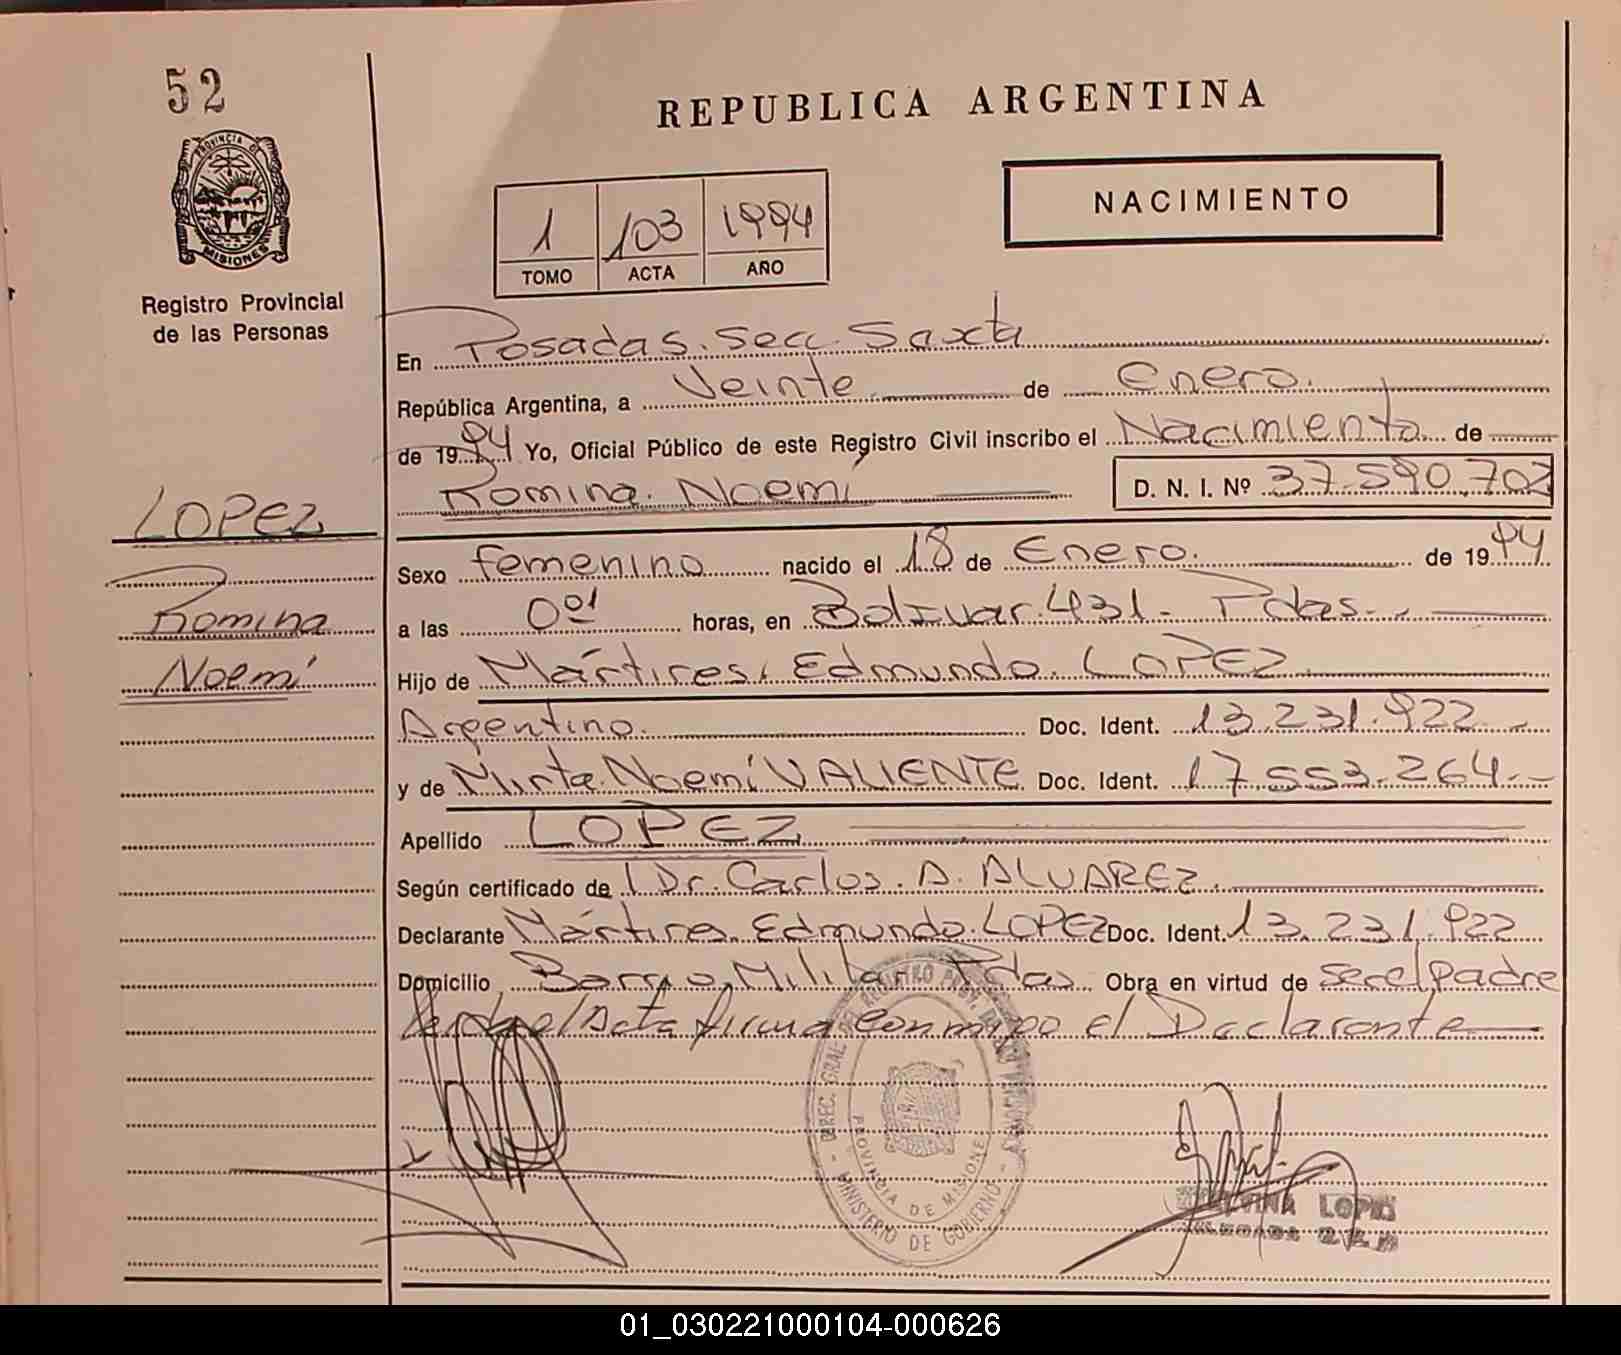 52
REPUBLICA ARGENTINA
NACIMIENTO
1 103 1994
TOMO ACTA AÑO
PROVINCIA DE
MISIONES
Registro Provincial
de las Personas
En Posadas. Secc. Sexta
República Argentina, a Veinte de Enero.
de 1994 Yo, Oficial Público de este Registro Civil inscribo el Nacimiento de
Romina Noemí D. N. I. Nº 37.590.702
LOPEZ
Romina
Noemí
Sexo femenino nacido el 18 de Enero. de 1994
a las 0º¹ horas, en Bolivar 431 - Pdas. -
Hijo de Mártires Edmundo LOPEZ
Argentino. Doc. Ident. 13.231.922 -
y de Mirta Noemí VALIENTE Doc. Ident. 17.553.264.-
Apellido LOPEZ
Según certificado de Dr. Carlos A. ALVAREZ.
Declarante Mártires Edmundo LOPEZ Doc. Ident. 13.231.922
Domicilio Barrio Militar Pdas Obra en virtud de ser el padre
el Acta firma conmigo el Declarante
DIREC. GRAL. DEL REGISTRO PROV. DE
PROVINCIA DE MISIONES
- MINISTERIO DE GOBIERNO -
01_030221000104-000626